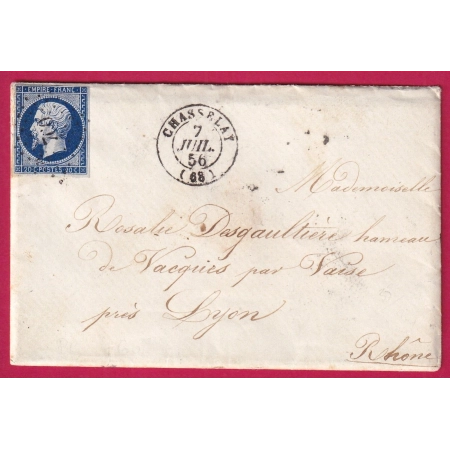 EMPIRE FRANC
20 C POSTES 20 C
CHASSELAY
7
JUIL.
56
(68)
Mademoiselle
Rosalie Dasgaultière hameau
de Vacques par Vaise
près Lyon
Rhône